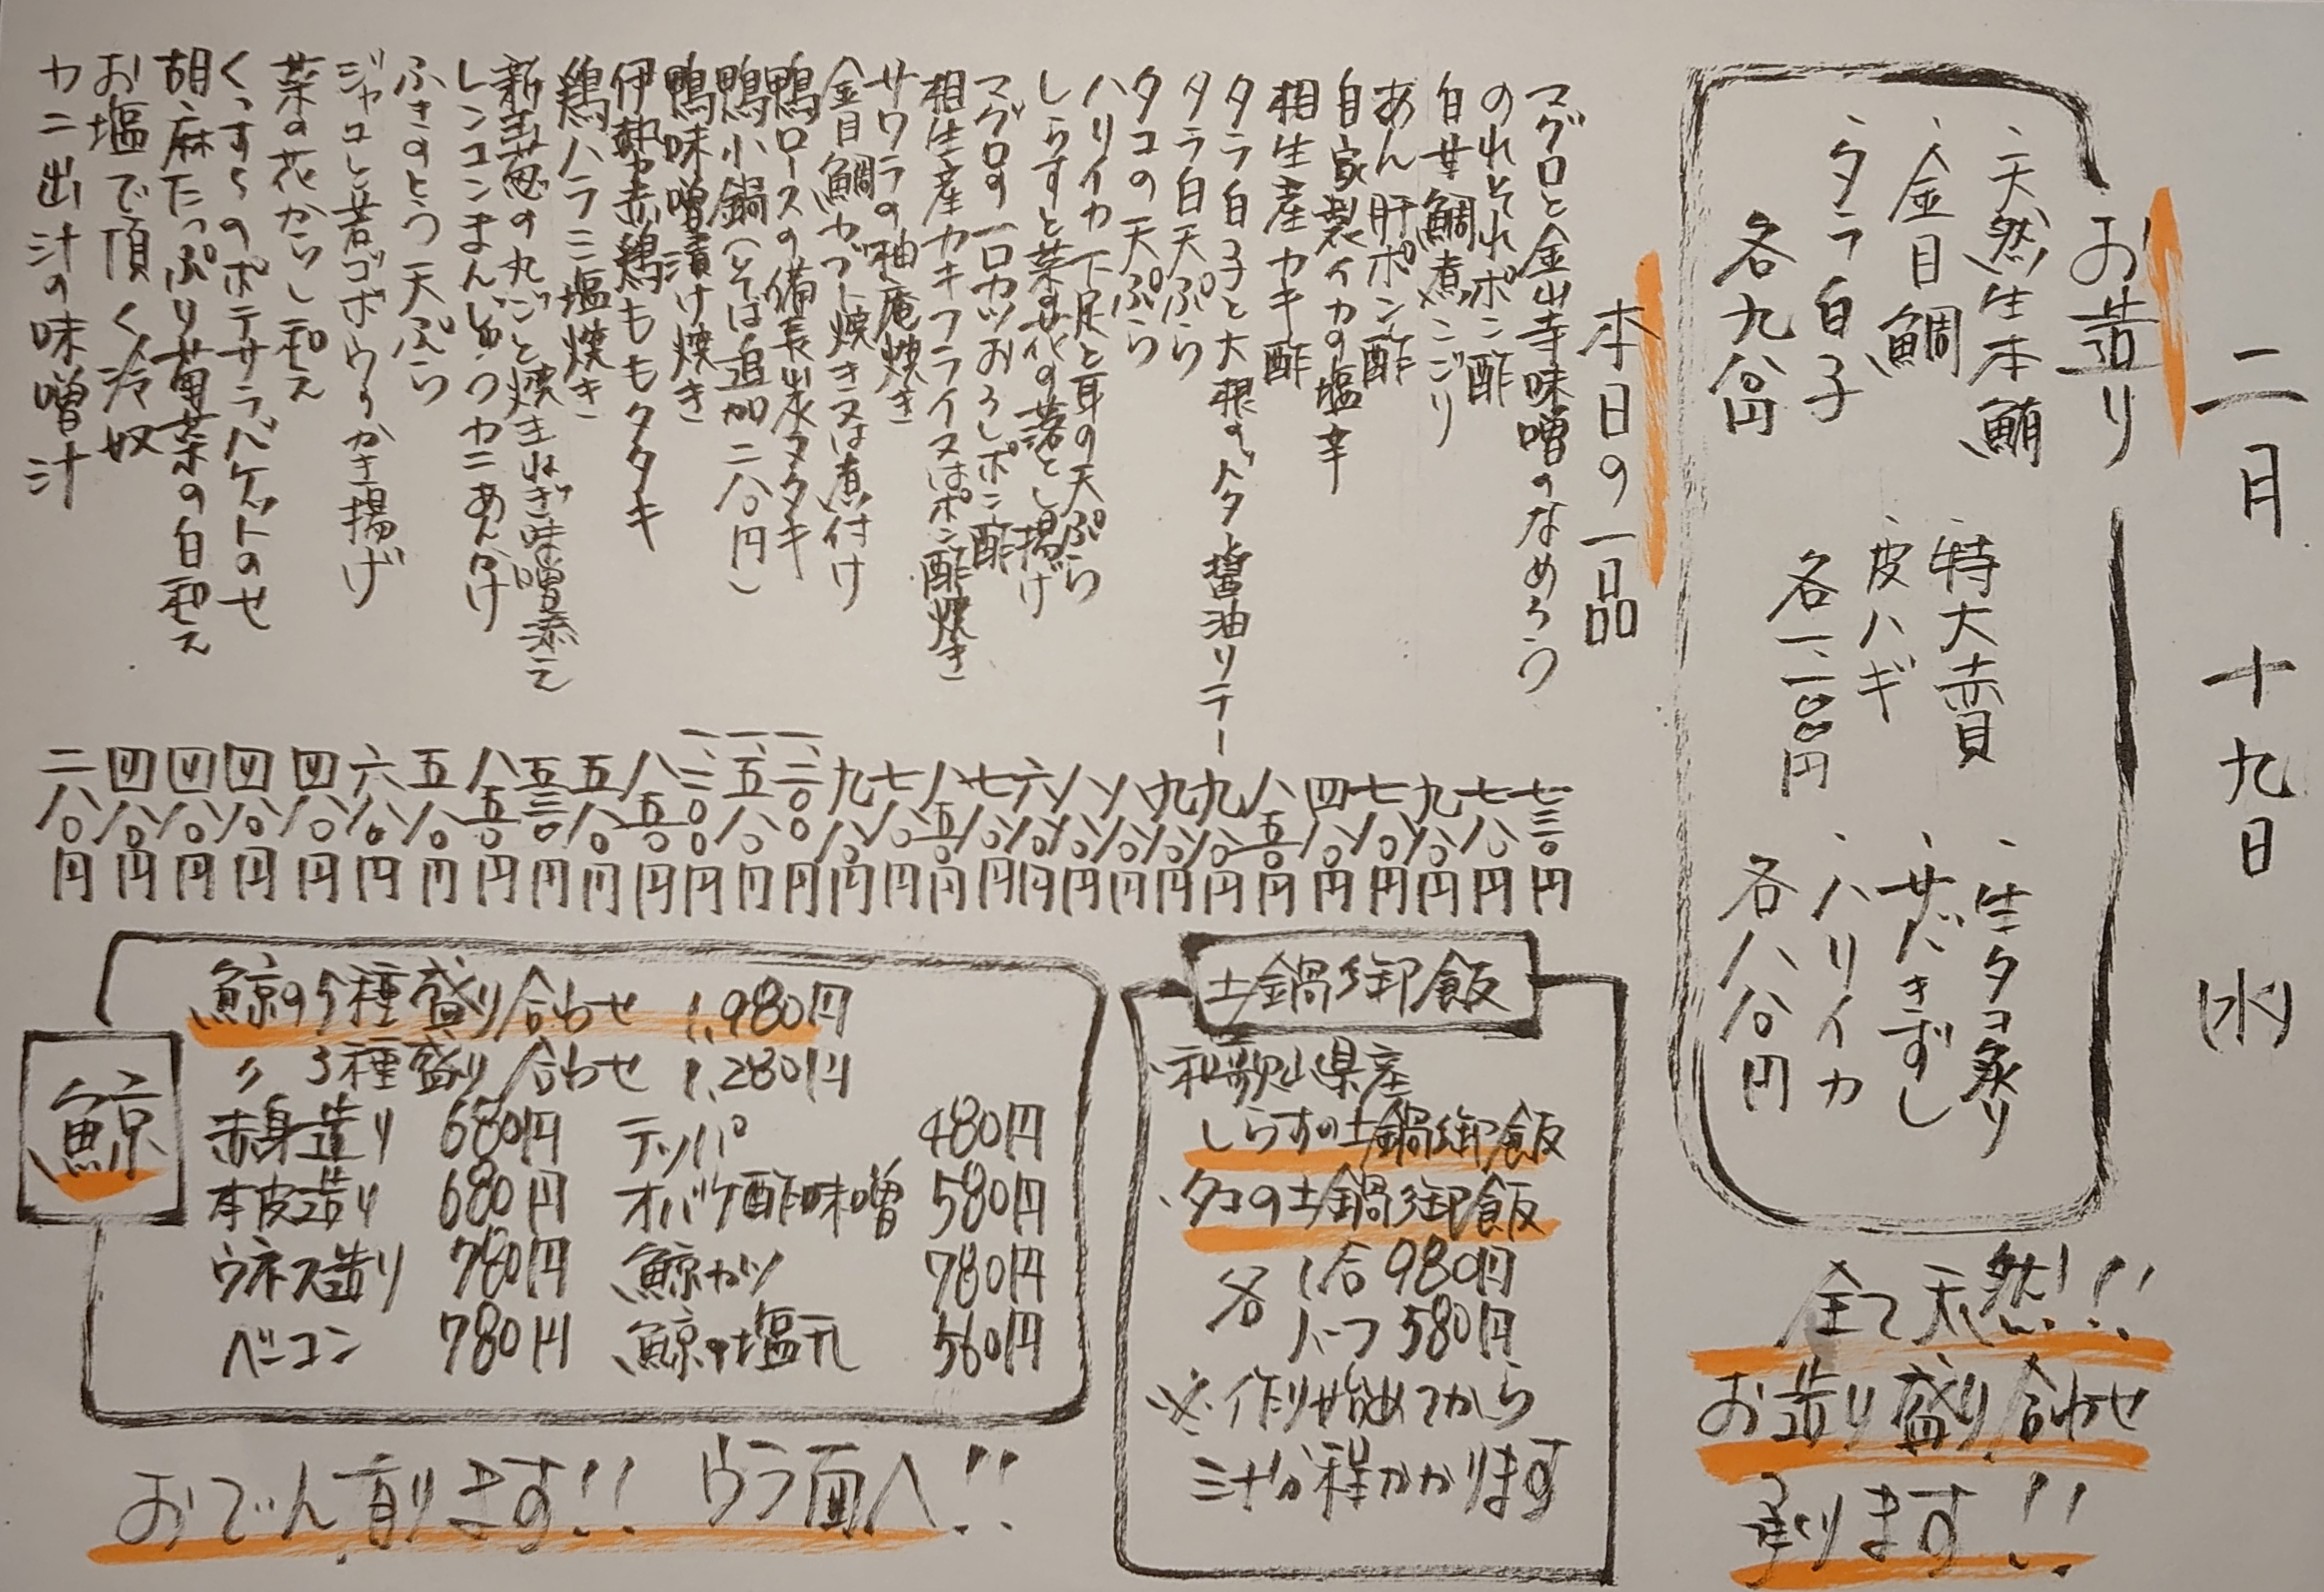 二月十九日(水)
お造り
・天然生本鮪
・金目鯛
・タラ白子
各九八〇円
・特大赤貝
・皮ハギ
各一、二〇〇円
・生タコ炙り
・サバきずし
・ハリイカ
各八八〇円
全て天然!!
お造り盛り合わせ
承ります!!
本日の一品
マグロと金山寺味噌のなめろう 七三〇円
のれそれポン酢 七八〇円
白甘鯛煮こごり 九八〇円
あん肝ポン酢 七八〇円
自家製イカの塩辛 四八〇円
相生産カキ酢 八五〇円
タラ白子と大根のバター醤油リゾット 九八〇円
タラ白子天ぷら 九八〇円
タコの天ぷら 八八〇円
ハリイカ下足と耳の天ぷら 八八〇円
しらすと菜の花の落とし揚げ 六八〇円
マグロの一口カツおろしポン酢 七八〇円
相生産カキフライ又はポン酢焼き 八五〇円
サワラの柚庵焼き 七八〇円
金目鯛カブト焼き又は煮付け 九八〇円
鴨ロースの備長炭タタキ 一、二〇〇円
鴨小鍋(そば追加二八〇円) 一、五八〇円
鴨味噌漬け焼き 一、二〇〇円
伊勢赤鶏ももタタキ 八五〇円
鶏ハラミ塩焼き 五八〇円
新玉葱の丸ごと焼き玉ねぎ味噌添え 五三〇円
レンコンまんじゅうカニあん掛け 八五〇円
ふきのとう天ぷら 五八〇円
ジャコと若ゴボウのかき揚げ 六八〇円
菜の花からし和え 四八〇円
くつすくのポテサラバケットのせ 四八〇円
胡麻たっぷり菊菜の白和え 四八〇円
お塩で頂く冷奴 四八〇円
カニ出汁の味噌汁 二八〇円
土鍋御飯
・和歌山県産
しらすの土鍋御飯
・タコの土鍋御飯
各 1合 980円
ハーフ 580円
※作り始めてから
三十分程かかります
鯨
鯨の5種盛り合わせ 1,980円
〃 3種盛り合わせ 1,280円
赤身造り 680円 テッパ 480円
本皮造り 680円 オバケ酢味噌 580円
ウネス造り 780円 鯨カツ 780円
ベーコン 780円 鯨の塩煮 560円
おでん有ります!! ウラ面へ!!